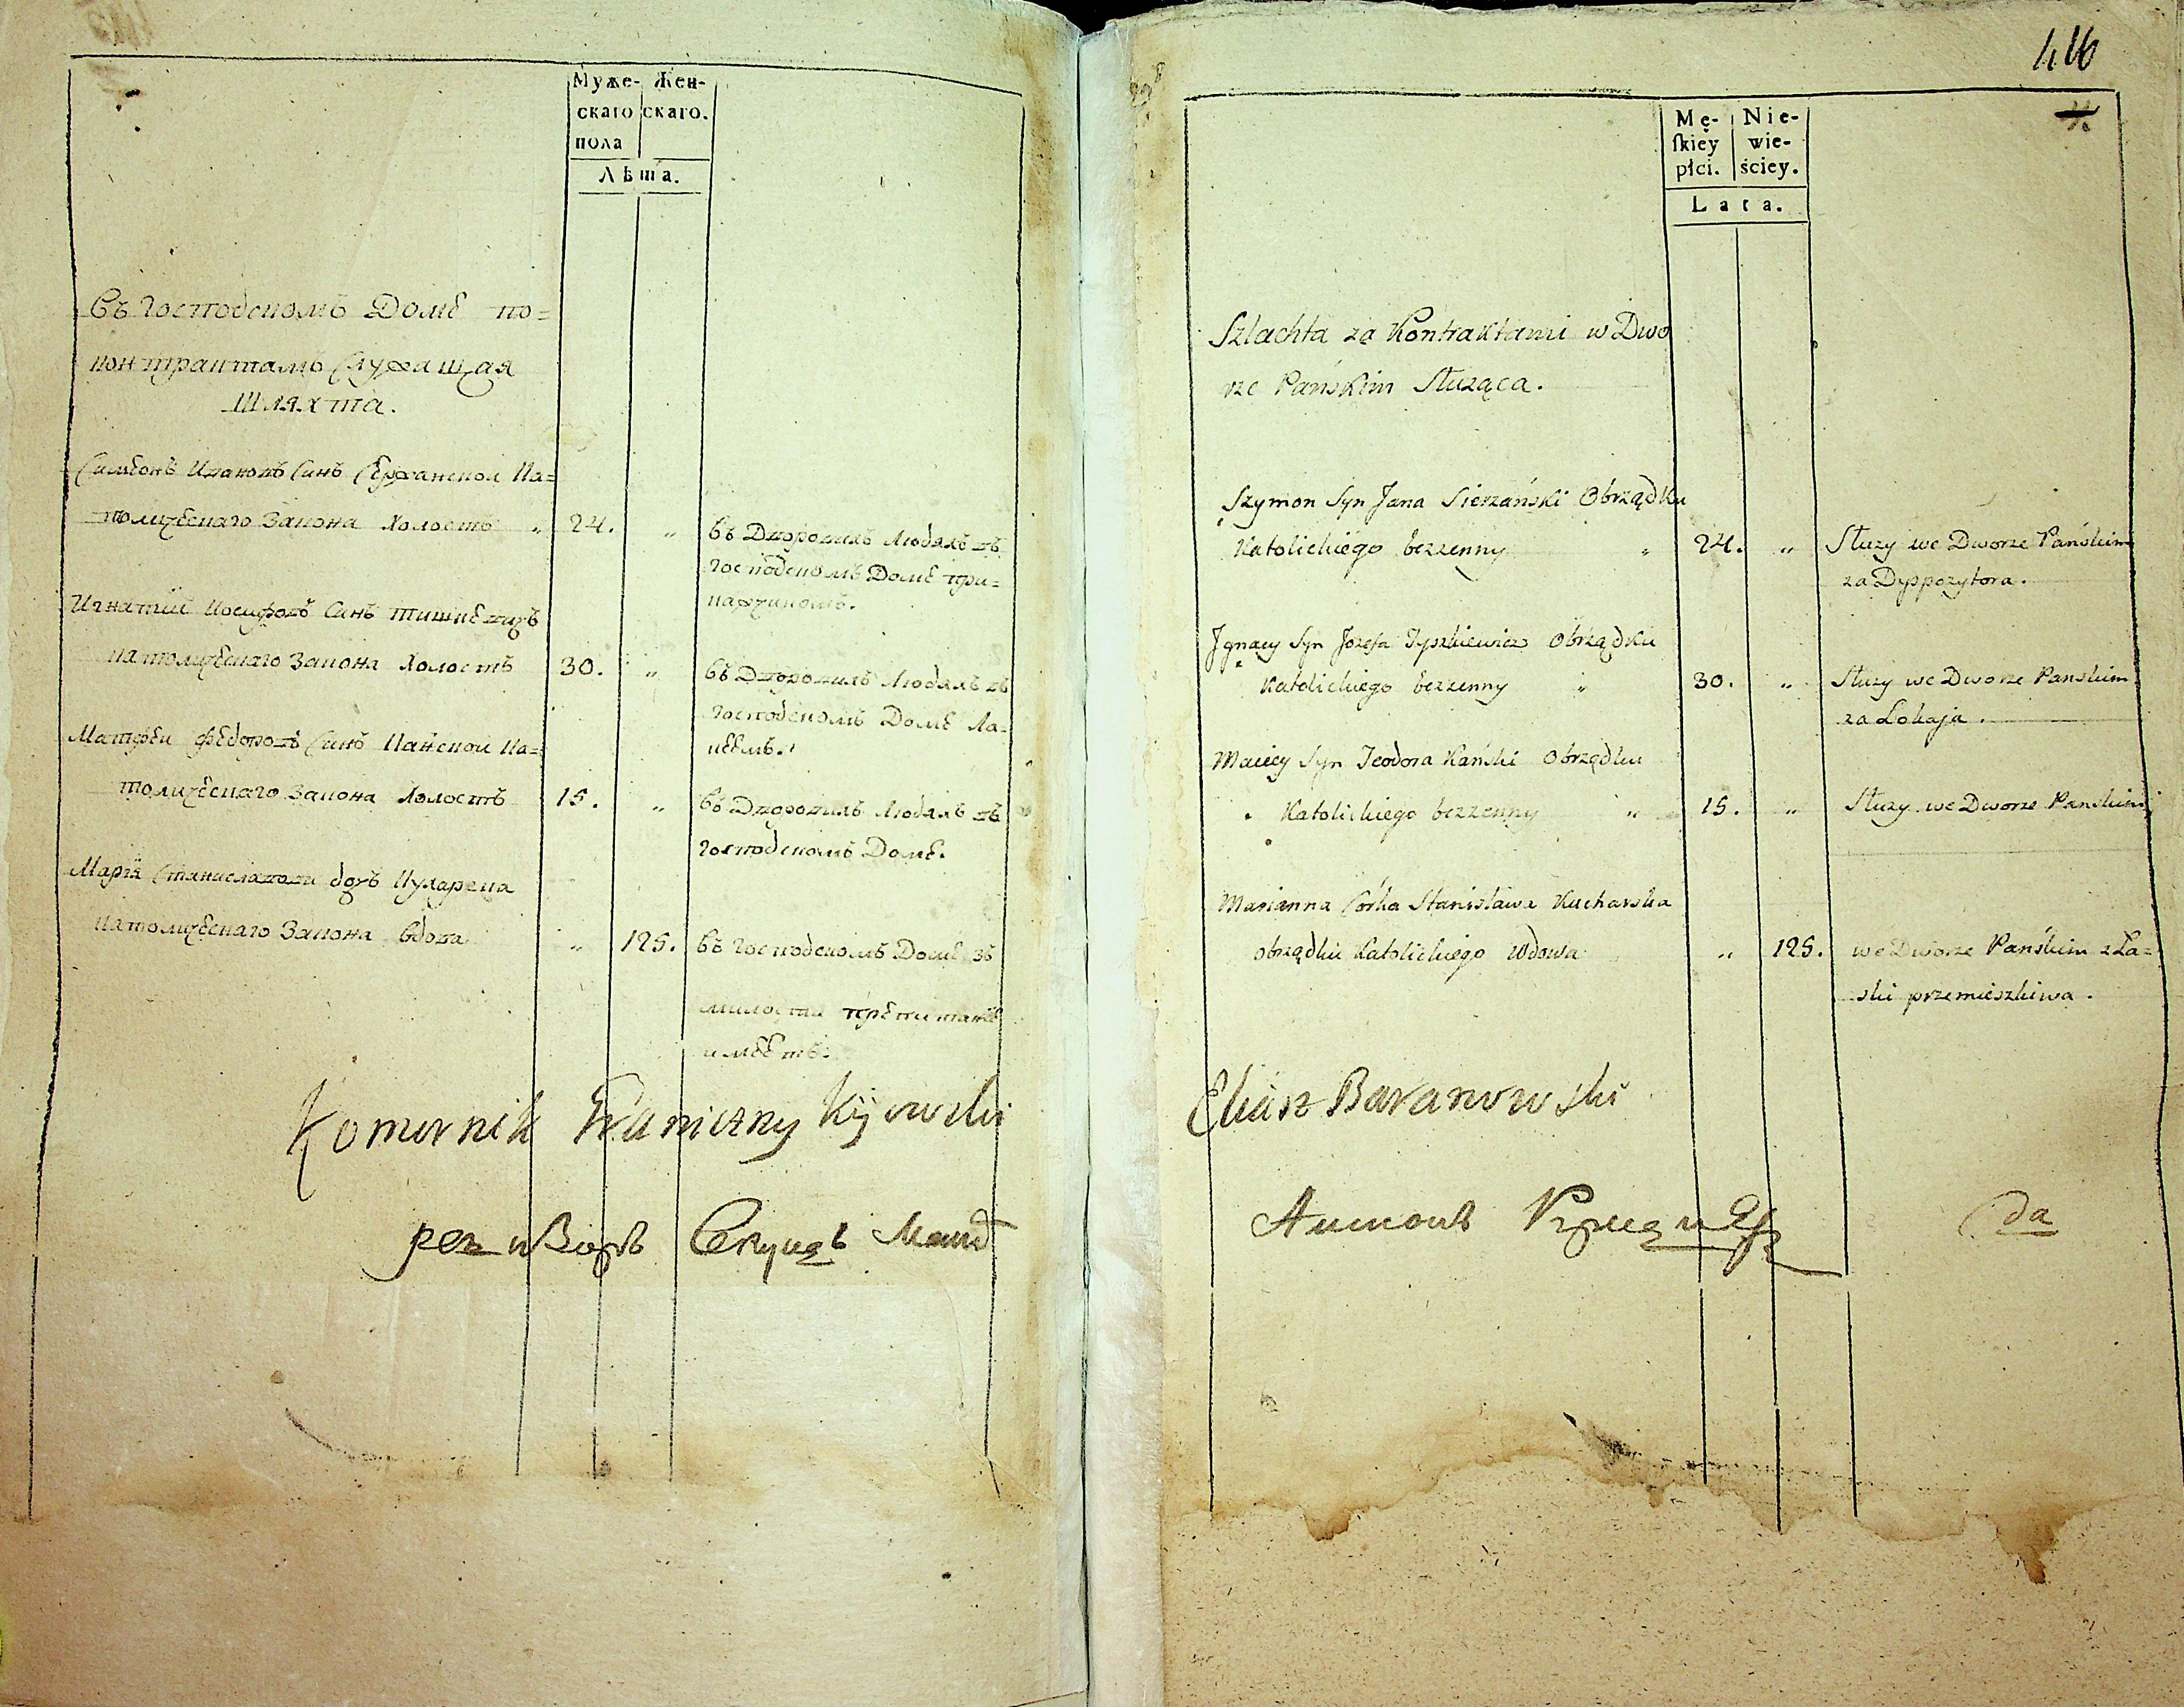 Муже- Жен-
скаго скаго.
пола
Лѣта.
Въ Господскомъ Домѣ по=
контрактамъ Служащая
Шляхта.
Симеонъ Ивановъ Синъ Сержанской Ка=
толическаго Закона Холостъ „ 24. „ Въ Дворовихъ Людяхъ въ
Господскомъ Домѣ при=
кащикомъ.
Игнатiй Иосифовъ Синъ Тишкевичъ
католическаго Закона Холостъ 30. „ Въ Дворовихъ Людяхъ въ
Господскомъ Домѣ Ла=
кѣемъ.
Матфѣй Фѣдоровъ Синъ Канской Ка=
толическаго Закона Холостъ 15. „ Въ Дворовихъ Людяхъ въ
Господскомъ Домѣ.
Марiя Станиславова дочъ Кухарска
католическаго Закона Вдова „ 125. Въ Господскомъ Домѣ зъ
милости препитанiе
имѣетъ.
Komornik Graniczny Kijowski
ревизоръ Секундъ Маиоръ
416
Mę- Nie-
skiey wie-
płci. ściey.
Lata.
Szlachta za Kontraktami w Dwo
rze Pańskim Służąca.
Szymon Syn Jana Sierzański Obrządku
Katolickiego bezzenny „ 24. „ Służy we Dworze Pańskim
za Dyspozytora.
Jgnacy Syn Jozefa Tyszkiewicz Obrządku
Katolickiego bezzenny „ 30. „ Służy we Dworze Panskim
za Lokaja.
Maciey Syn Teodora Kański Obrządku
Katolickiego bezzenny „ 15. „ Służy we Dworze Panskim
Marianna Córka Stanisława Kucharska
obrządku Katolickiego Wdowa „ 125. we Dworze Pańskim z Ła=
ski przemieszkiwa.
Eliasz Baranowski
Антонъ